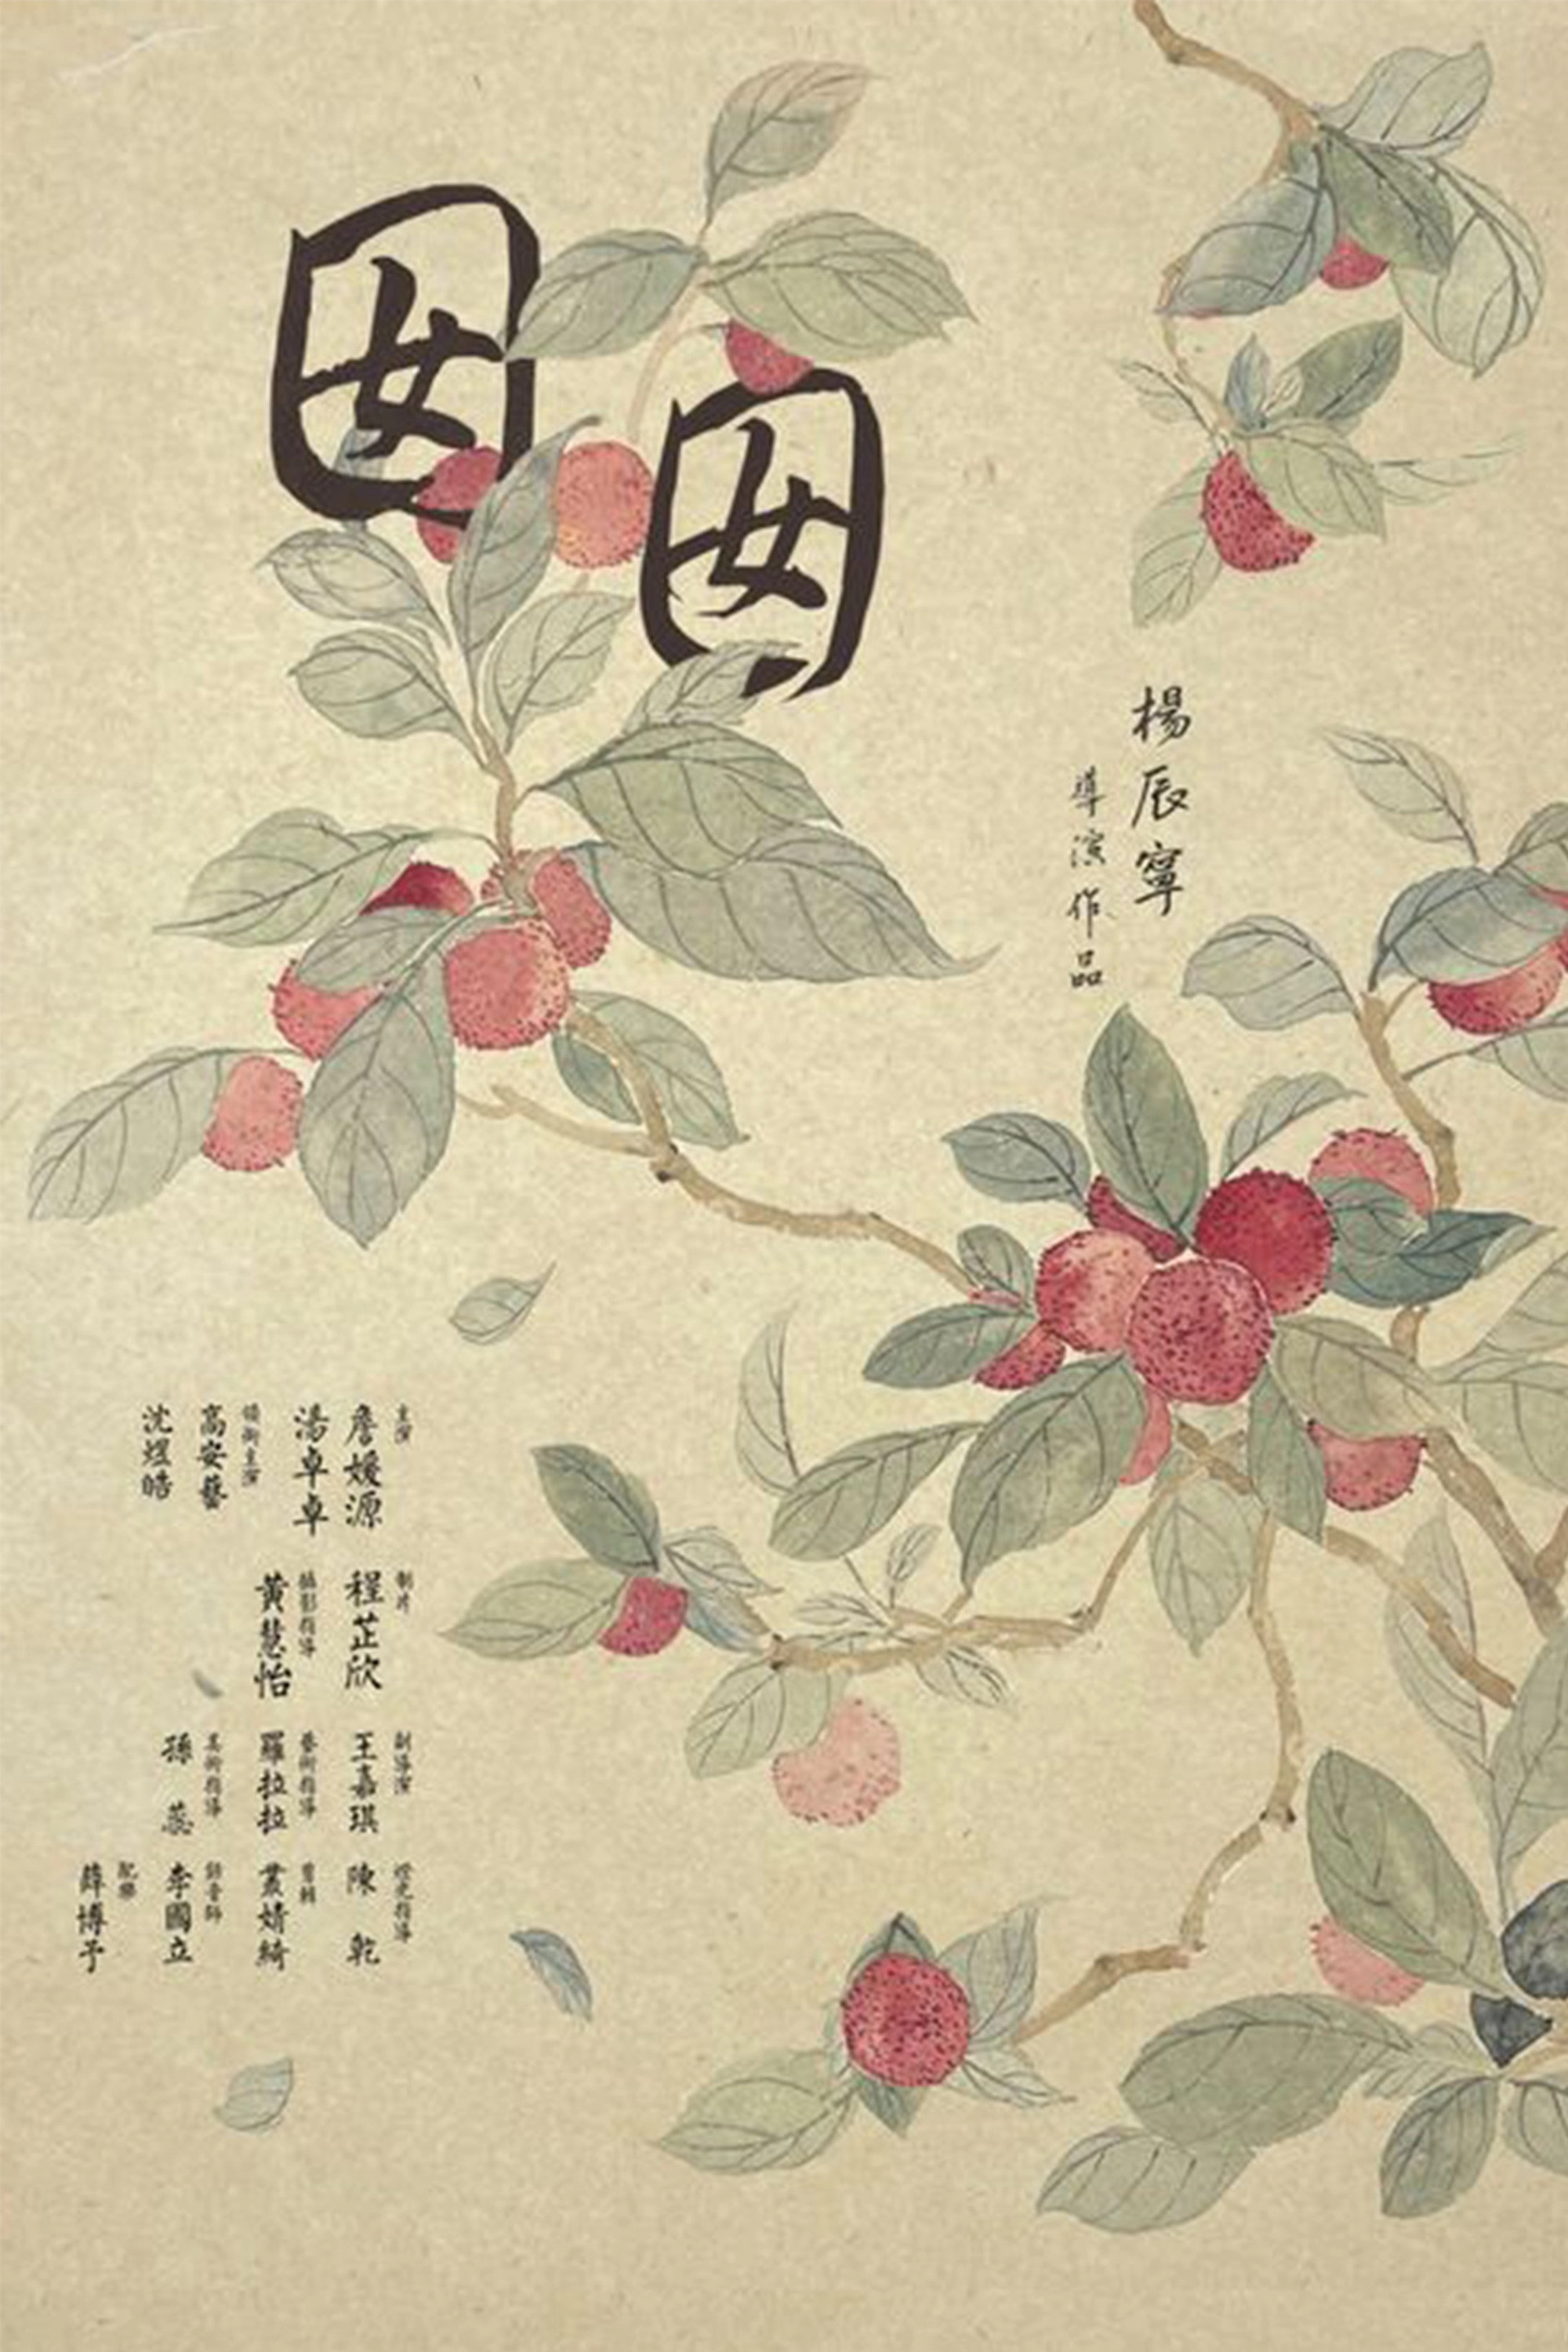 囡囡
楊辰寧
導演作品
主演
詹媛源
湯卓卓
領銜主演
高安藝
沈煜皓
制片
程芷欣
攝影指導
黃慧怡
副導演
王嘉琪
藝術指導
羅拉拉
美術指導
孫蕊
燈光指導
陳乾
剪輯
叢婧綺
錄音師
李國立
配樂
薛博予